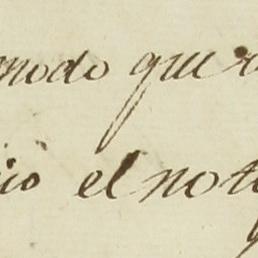 modo que
el not